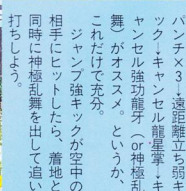 パンチ×3→遠距離立ち弱キ
ック→キャンセル龍星掌→キ
ャンセル強功龍牙(or神極乱
舞)がオススメ。というか、
これだけで充分。
　ジャンプ強キックが空中の
相手にヒットしたら、着地と
同時に神極乱舞を出して追い
打ちしよう。